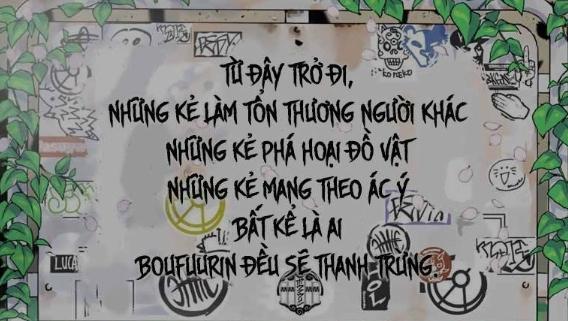 TỪ ĐÂY TRỞ ĐI,
NHỮNG KẺ LÀM TỔN THƯƠNG NGƯỜI KHÁC
NHỮNG KẺ PHÁ HOẠI ĐỒ VẬT
NHỮNG KẺ MANG THEO ÁC Ý
BẤT KỂ LÀ AI
BOUFUURIN ĐỀU SẼ THANH TRỪNG.